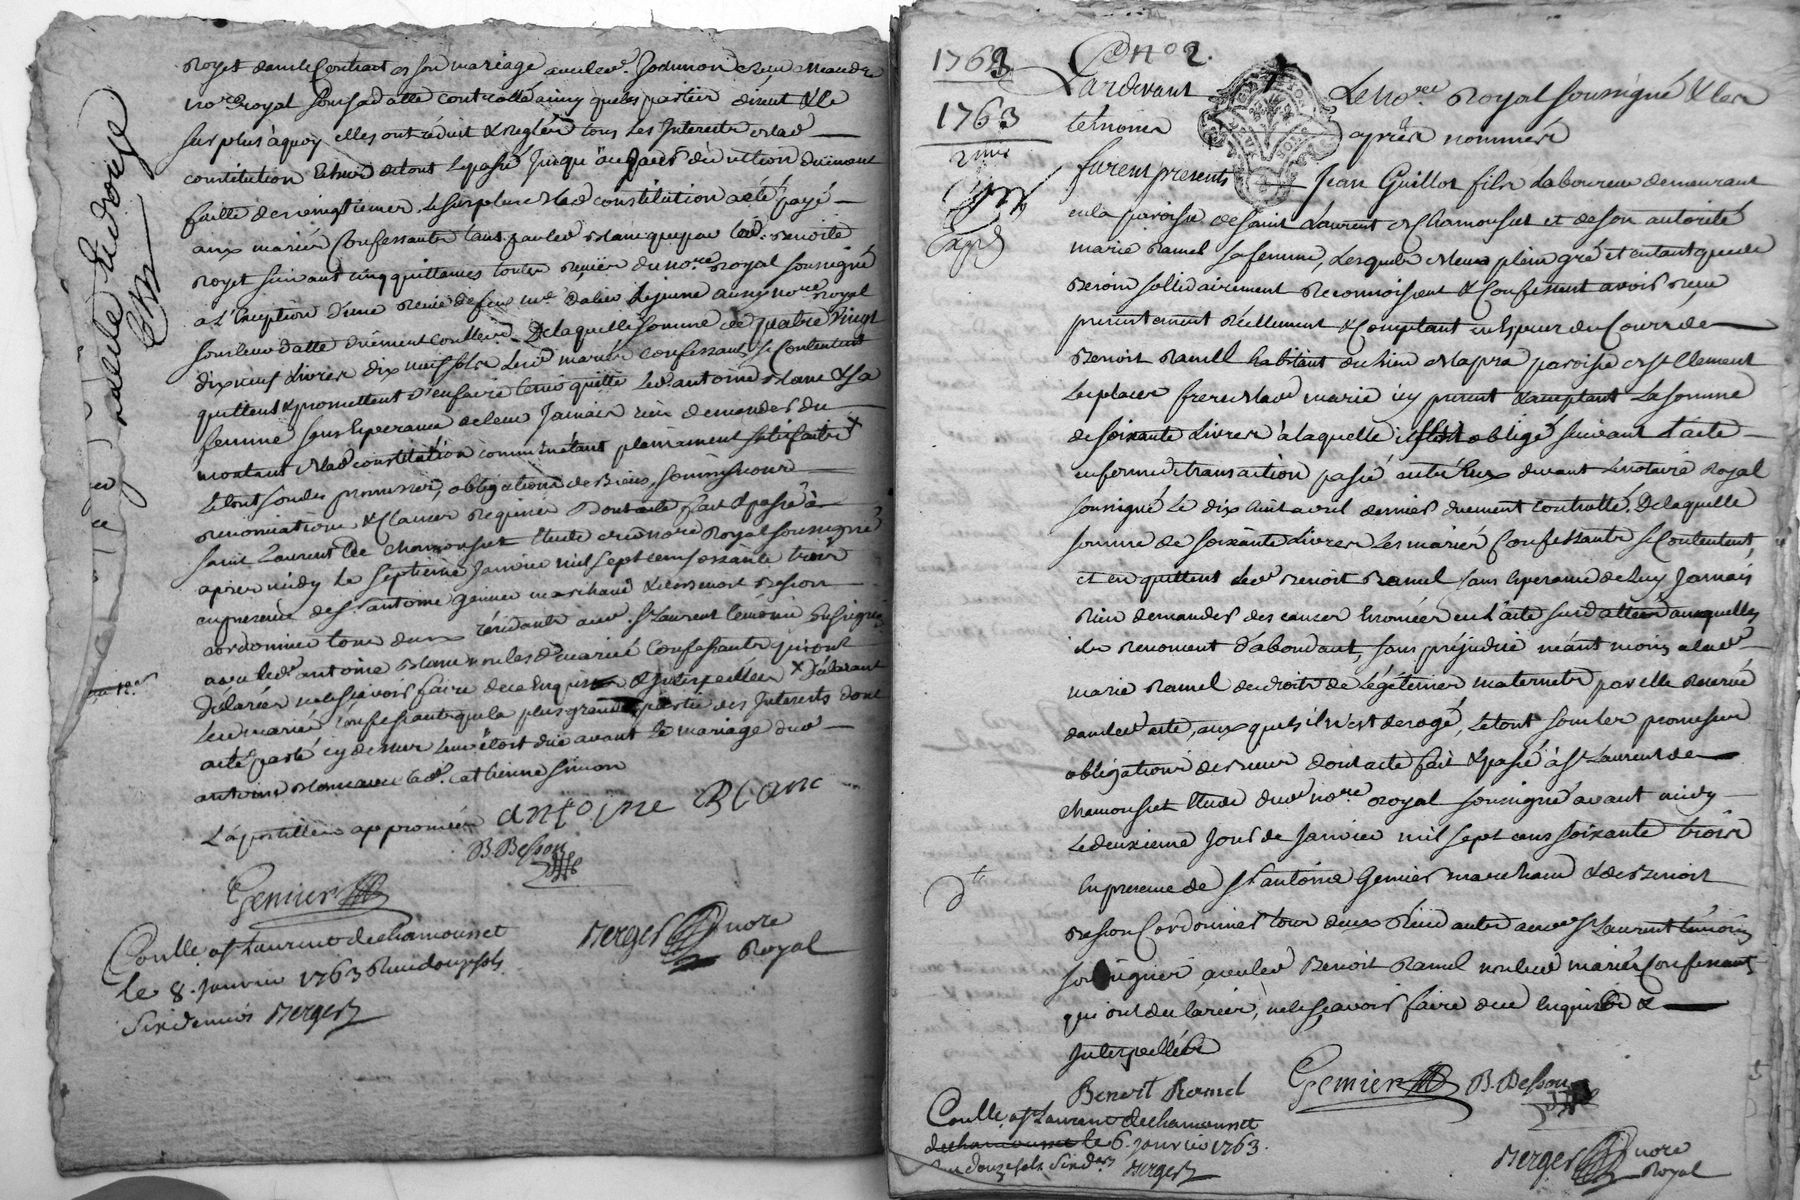 Royet dans le Contract de son mariage avec led.
no.re Royal sous sa datte controllé ainsy que les parties disent & le
surplus à quoy elles ont réduit & réglér tous les Interets de lad
constitution
faitte des vingtiemes, le surplus de lad constitution a été payé
aux mariés Confessants tant par led Blanc que par lad. Benoite
Royet suivant cinq quittances toutes Reçües du no.re Royal soussigné
a L'Exception d'une Reçüe de feu m.e Dalin Lejeune aussy no.re Royal
sous leur datte düement contlées. De laquelle somme de quatre vingt
dix neuf Livres dix neuf sols lesd mariés confessants se Contentent
quittent & promettent d'en faire tenir quitte led. antoine Blanc & sa
femme sans Esperance de leur Jamais rien demander du
montant de lad constitution comme étant pleinement satisfaits x
Le tout sous les promesses, obligations de Biens, soumissions
renonciations & Clauses Requises Dont acte fait & passé à
saint Laurent De Chamousset Etude du no.re Royal soussigné
apres midy le septieme Janvier mil sept cent soixante trois
en presence de s.r antoine Genier marchand & de Benoit Besson
cordonnier tous deux résidants aud. S.t Laurent témoins soussignés
avec led. antoine Blanc non lesd. mariés Confessants qui ont
déclarés ne le sçavoir faire de ce Enquis & Interpellés x déclarant
lesd mariés Confessants que la plus grande partie des Interets dont
acté parlé cy dessus leur étoit düe avant le mariage dud
antoine Blanc avec lad. Catherine Simon
L'apostille approuvée antoine Blanc
B. Besson
Genier
Conllé a St Laurent de chamousset
le 8. janvier 1763 Reçu douze sols
six deniers Berger
Berger nore
Royal
1763
1763
N.o 2.
Pardevant Le no.re Royal soussigné & les
témoins après nommés
furent presents Jean Guillot fils Laboureur demeurant
en la paroisse de saint Laurent de Chamousset et de son autorité
marie Ramel sa femme, Lesquels de leur plein gré et en tant que de
Besoin sollidairement Reconnoissent & Confessent avoir Reçu
presentement Réellement & Comptant en Espece du Cours de
Benoit Ramel habitant du lieu de Lapra paroisse de S.t Clement
Les places frere de lad marie icy present & acceptant La somme
de soixante Livres à laquelle il s'est obligé suivant L'acte
en forme de transaction passé entr'Eux devant le notaire Royal
soussigné Le dix huit avril dernier duement controllé. De laquelle
somme de soixante Livres Les mariés Confessants se Contentent,
et en quittent led Benoit Ramel sans Esperance de Luy Jamais
Rien demander des causes Enoncées en L'acte susdatté auxquelles
ils Renoncent d'abondant, sans préjudice néant moins a lad
marie Ramel de droits de Légitimes maternels par elle Reservé
dans led acte, aux quels il n'est derogé, Le tout sous les promesses
obligations de Biens dont acte fait & passé à S.t Laurent de
Chamousset Etude dud no.re Royal soussigné avant midy
Le deuxieme Jour de Janvier mil sept cens soixante trois
En presence de S.r antoine Genier marchand & de Benoit
Besson Cordonnier tous deux Résidants aud S.t Laurent témoins
soussignés avec led Benoit Ramel non lesd mariés Confessants
qui ont declarés, ne le sçavoir faire de ce Enquis &
Interpellés
Benoit Ramel Genier B. Besson
Conllé a St Laurent de chamousset
de chamousset le 6. janvier 1763.
Reçu douze sols six ders Berger
Berger nore
Royal